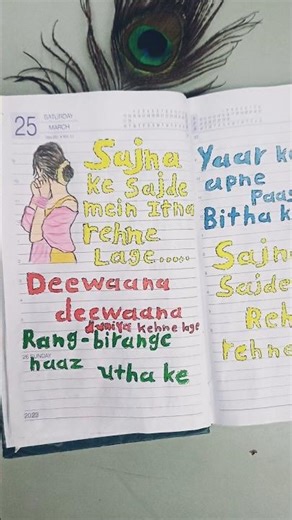 25
SATURDAY
MARCH
Sajna
ke Sajde
mein Itna
rehne
Lage.....
Deewaana
deewaana
duniya kehne lage
Rang-birange
haaz utha ke
26 SUNDAY
2023
Yaar ke
apne
Paas
Bitha k
Sajn
Sajde
Reh
rehne